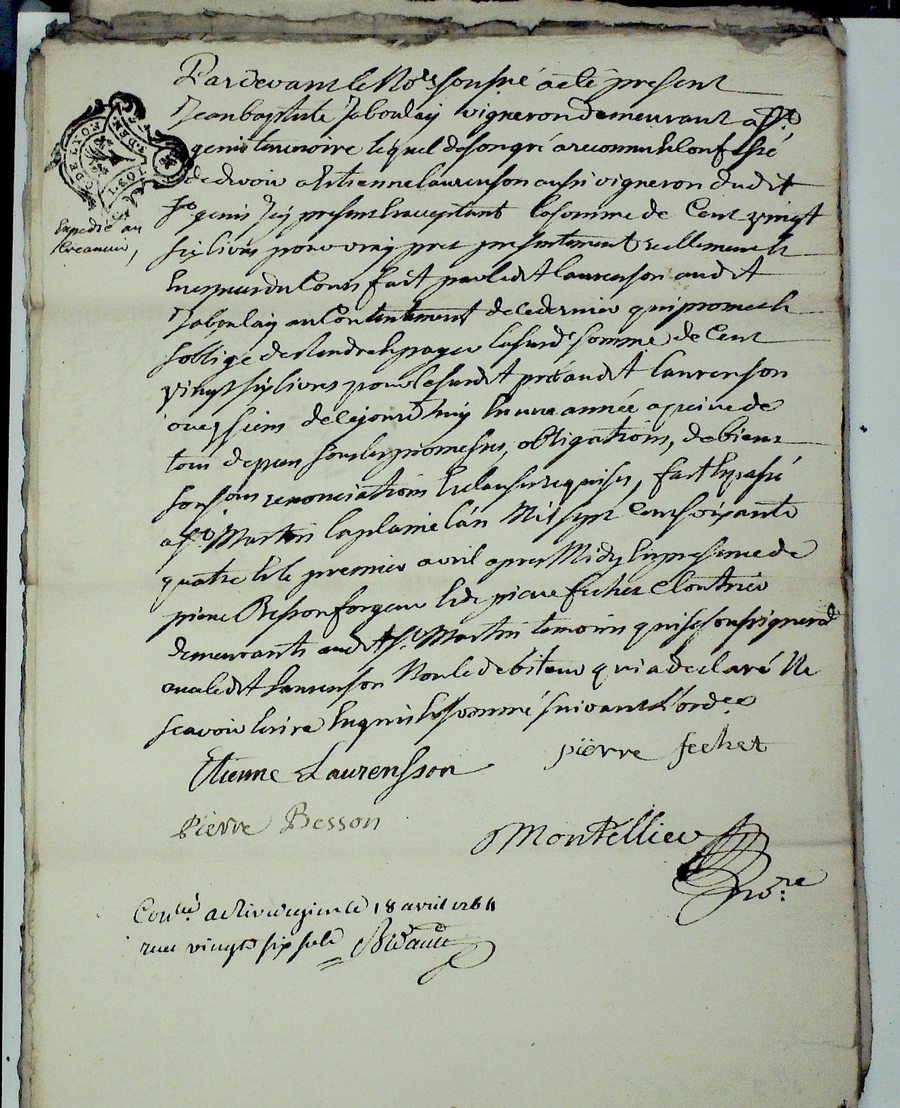 Pardevant le No.re soussné a été present
Jean baptiste Jaboulay vigneron demeurant a St
genis terrenoire lequel de son gré a reconnu & confessé
de devoir a Etienne laurenson aussi vigneron dudit
St genis Icy present & acceptant la somme de Cent vingt
six livres pour vray pret presentement reellement &
En especes du Cours fait par ledit laurenson audit
Jaboulay au Contentement de ce dernier qui promet &
s'oblige de rendre & payer lasusd. somme de Cent
vingt six livres pour le susdit prêt audit laurenson
ou es siens de ce jourd'huy En une année a peine de
tous depens sous les promesses, obligations, de biens
sousons renonciations & clauses requises, fait & passé
a St Martin la plaine l'an Mil sept Cent soixante
quatre & le premier avril apres Midy En presence de
pierre Besson forgeur & de pierre fechet Cloutrier
demeurants audit St Martin temoins qui se sousigneront
avec ledit laurenson Non le debiteur qui a declaré Ne
scavoir écrire Enquis & sommé suivant l'ord.ce
Etienne Laurensson
pierre fechet
Pierre Besson
Montellier
no.re
Con.lé a Rivedegier le 18 avril 1764
receu vingt six sols
GEN. DE LYON
Expedié au
Creancier,